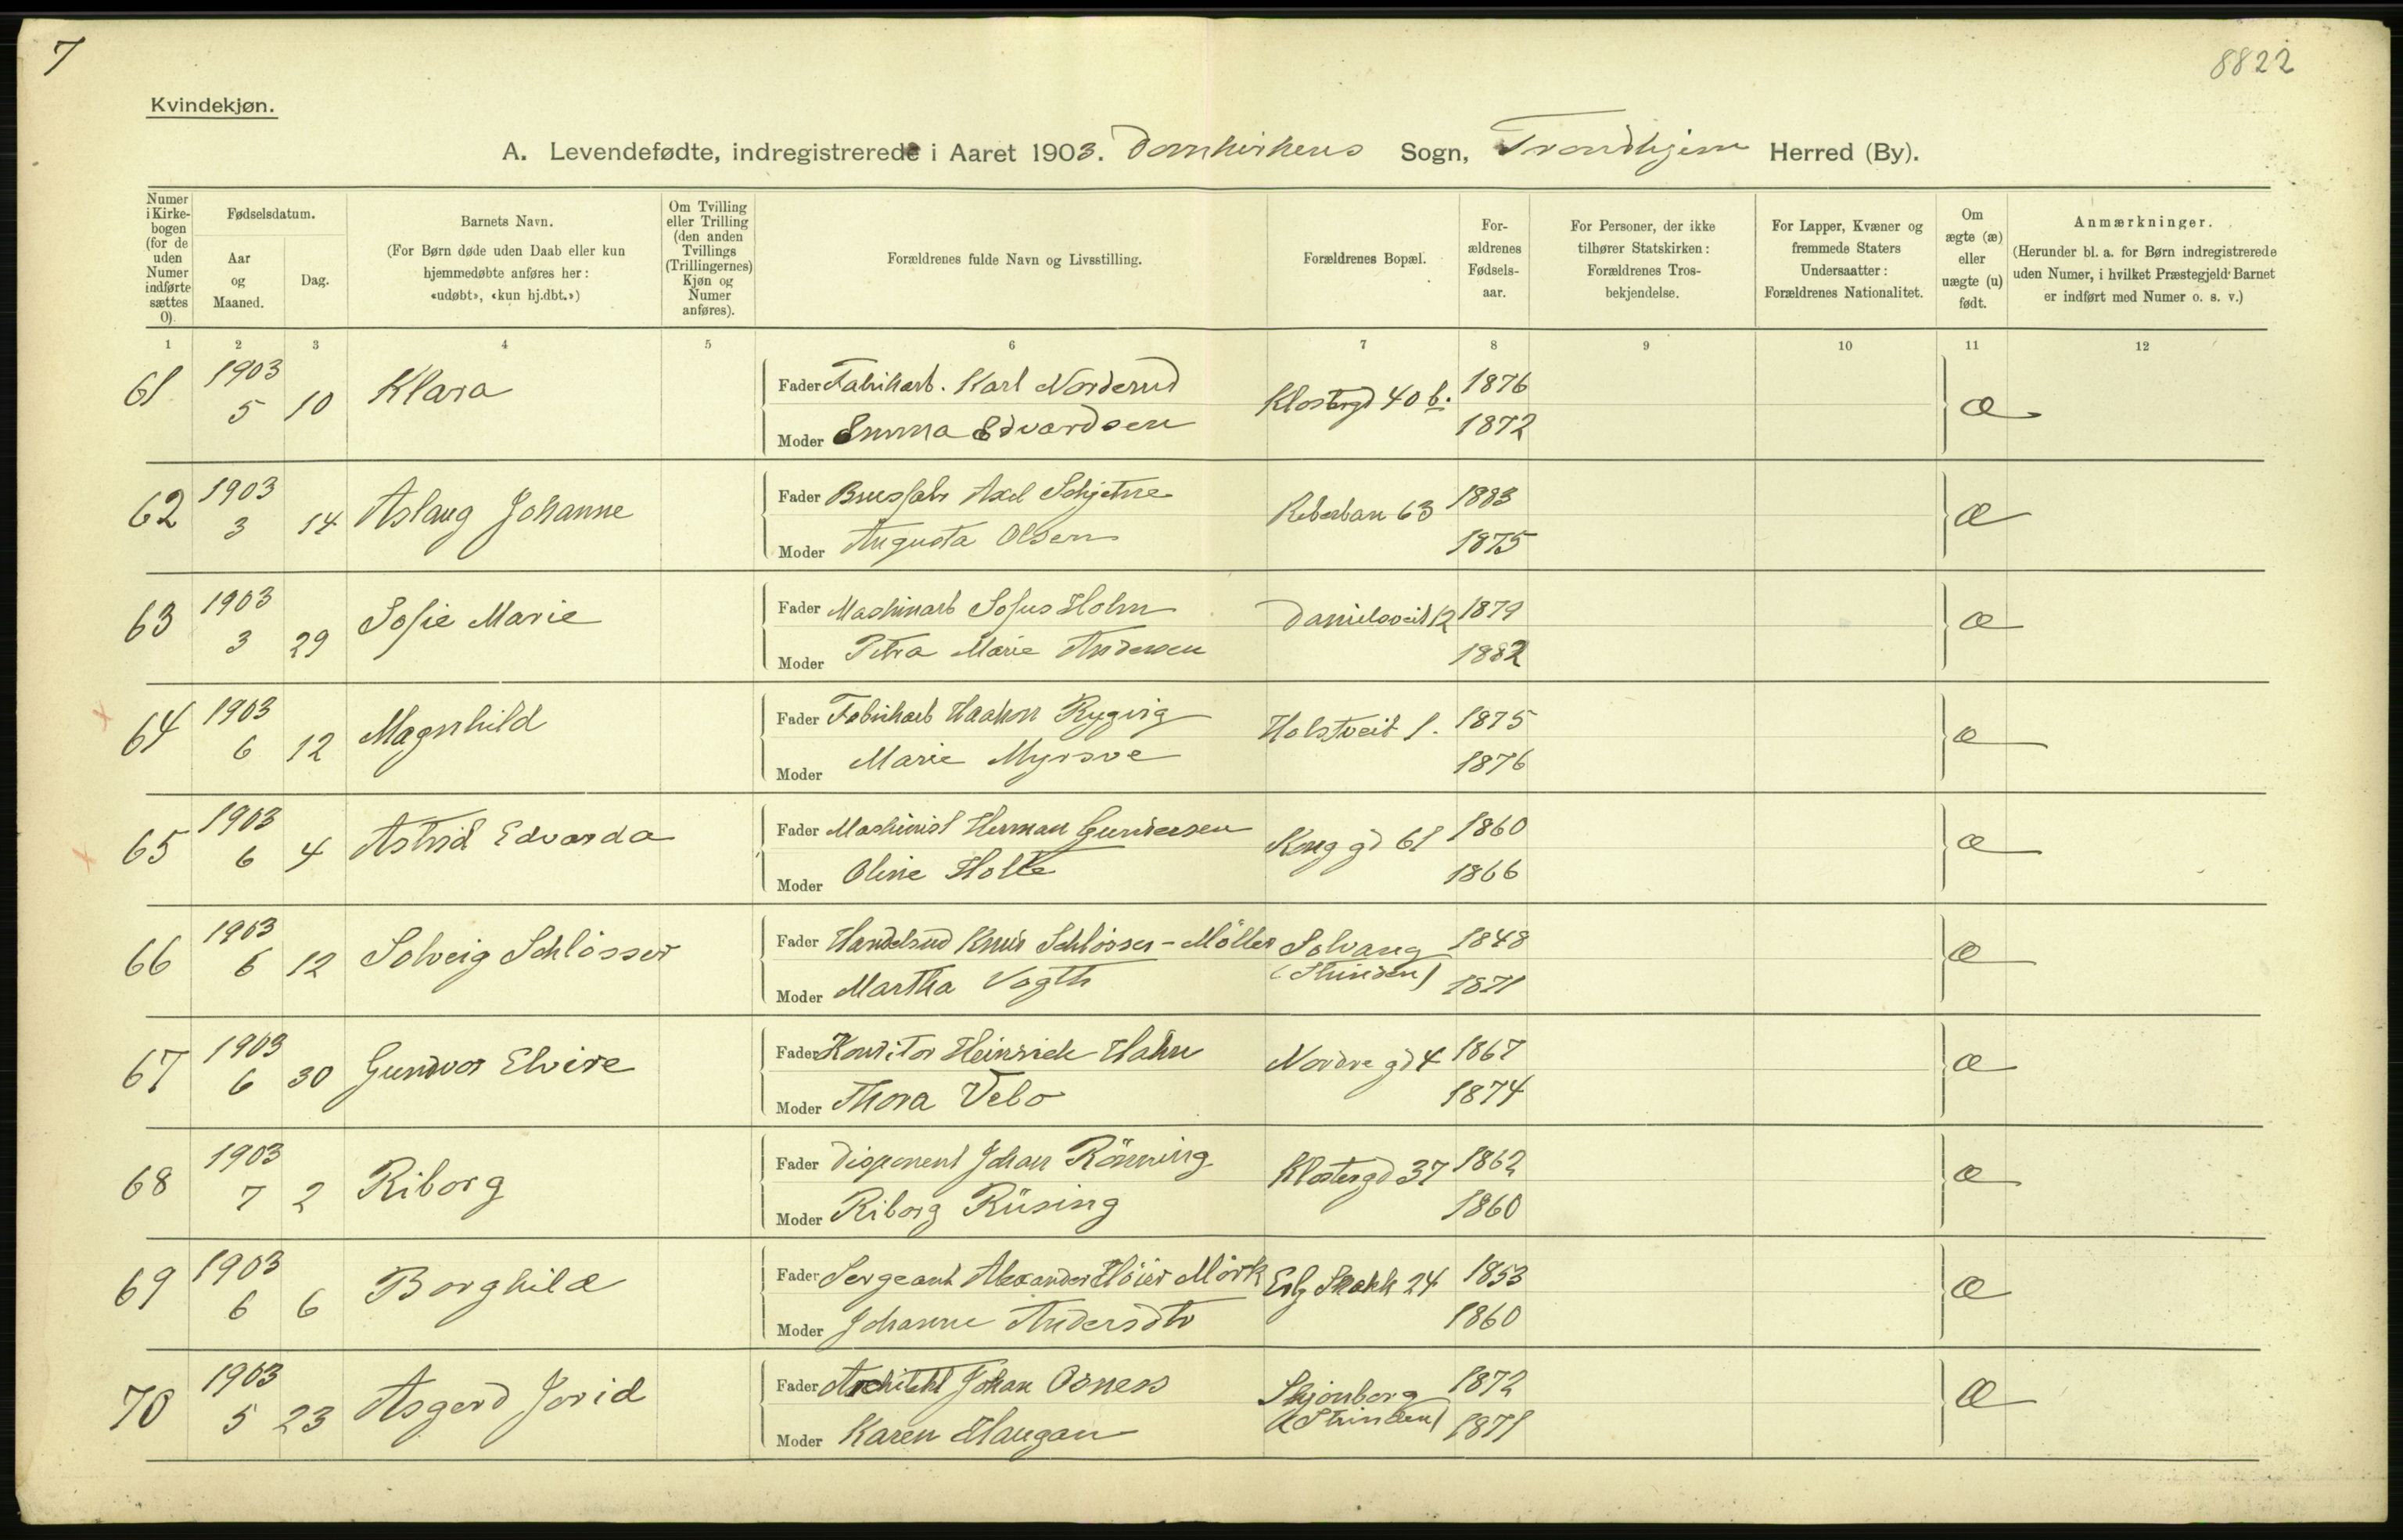 7
8822
Kvindekjøn.
A. Levendefødte, indregistrerede i Aaret 1903. Domkirkens Sogn, Trondhjem Herred (By).
Numer i Kirkebogen (for de uden Numer indførte sættes 0).
Fødselsdatum.
Aar og Maaned.
Dag.
Barnets Navn.
(For Børn døde uden Daab eller kun hjemmedøbte anføres her: «udøbt», «kun hj.dbt.»)
Om Tvilling eller Trilling (den anden Tvillings (Trillingernes) Kjøn og Numer anføres).
Forældrenes fulde Navn og Livsstilling.
Forældrenes Bopæl.
Forældrenes Fødselsaar.
For Personer, der ikke tilhører Statskirken: Forældrenes Trosbekjendelse.
For Lapper, Kvæner og fremmede Staters Undersaatter: Forældrenes Nationalitet.
Om ægte (æ) eller uægte (u) født.
Anmærkninger.
(Herunder bl. a. for Børn indregistrerede uden Numer, i hvilket Præstegjeld Barnet er indført med Numer o. s. v.)
1 2 3 4 5 6 7 8 9 10 11 12
61 1903 5 10 Klara Fader Fabrikarb. Karl Norderud Klostergd 40 b. 1876 æ
Moder Emma Edvardsen 1872
62 1903 3 14 Aslaug Johanne Fader Brusfabr Axel Schjetne 63 1883 æ
Moder Augusta Olsen 1875
63 1903 3 29 Sofie Marie Fader Maskinarb Sofus Holm Danielsveit 12 1879 æ
Moder Petra Marie Andersen 1882
64 1903 6 12 Magnhild Fader Fabrikarb Haakon Rygvig Holstveit 1. 1875 æ
Moder Marie Myrsve 1876
65 1903 6 4 Astrid Edvarda Fader Maskinist Herman Gundersen Kong gd 61 1860 æ
Moder Oline Holte 1866
66 1903 6 12 Solveig Schlösser Fader Handelsud Knud Schlösser-Möller Solvang (Strinden) 1848 æ
Moder Martha Vogth 1871
67 1903 6 30 Gundvor Elvire Fader Konditor Heinrich Hahn Nordre gd 4 1867 æ
Moder Thora Vebo 1874
68 1903 7 2 Riborg Fader Disponent Johan Rönning Klostergd 37 1862 æ
Moder Riborg Rüsing 1860
69 1903 6 6 Borghild Fader Sergeant Alexander Höier Mörk Erlg Skakk 24 1853 æ
Moder Johanne Andersdtr 1860
70 1903 5 23 Asgerd Jorid Fader Architekt Johan Osness Skjönborg (Strinden) 1872 æ
Moder Karen Haugan 1871